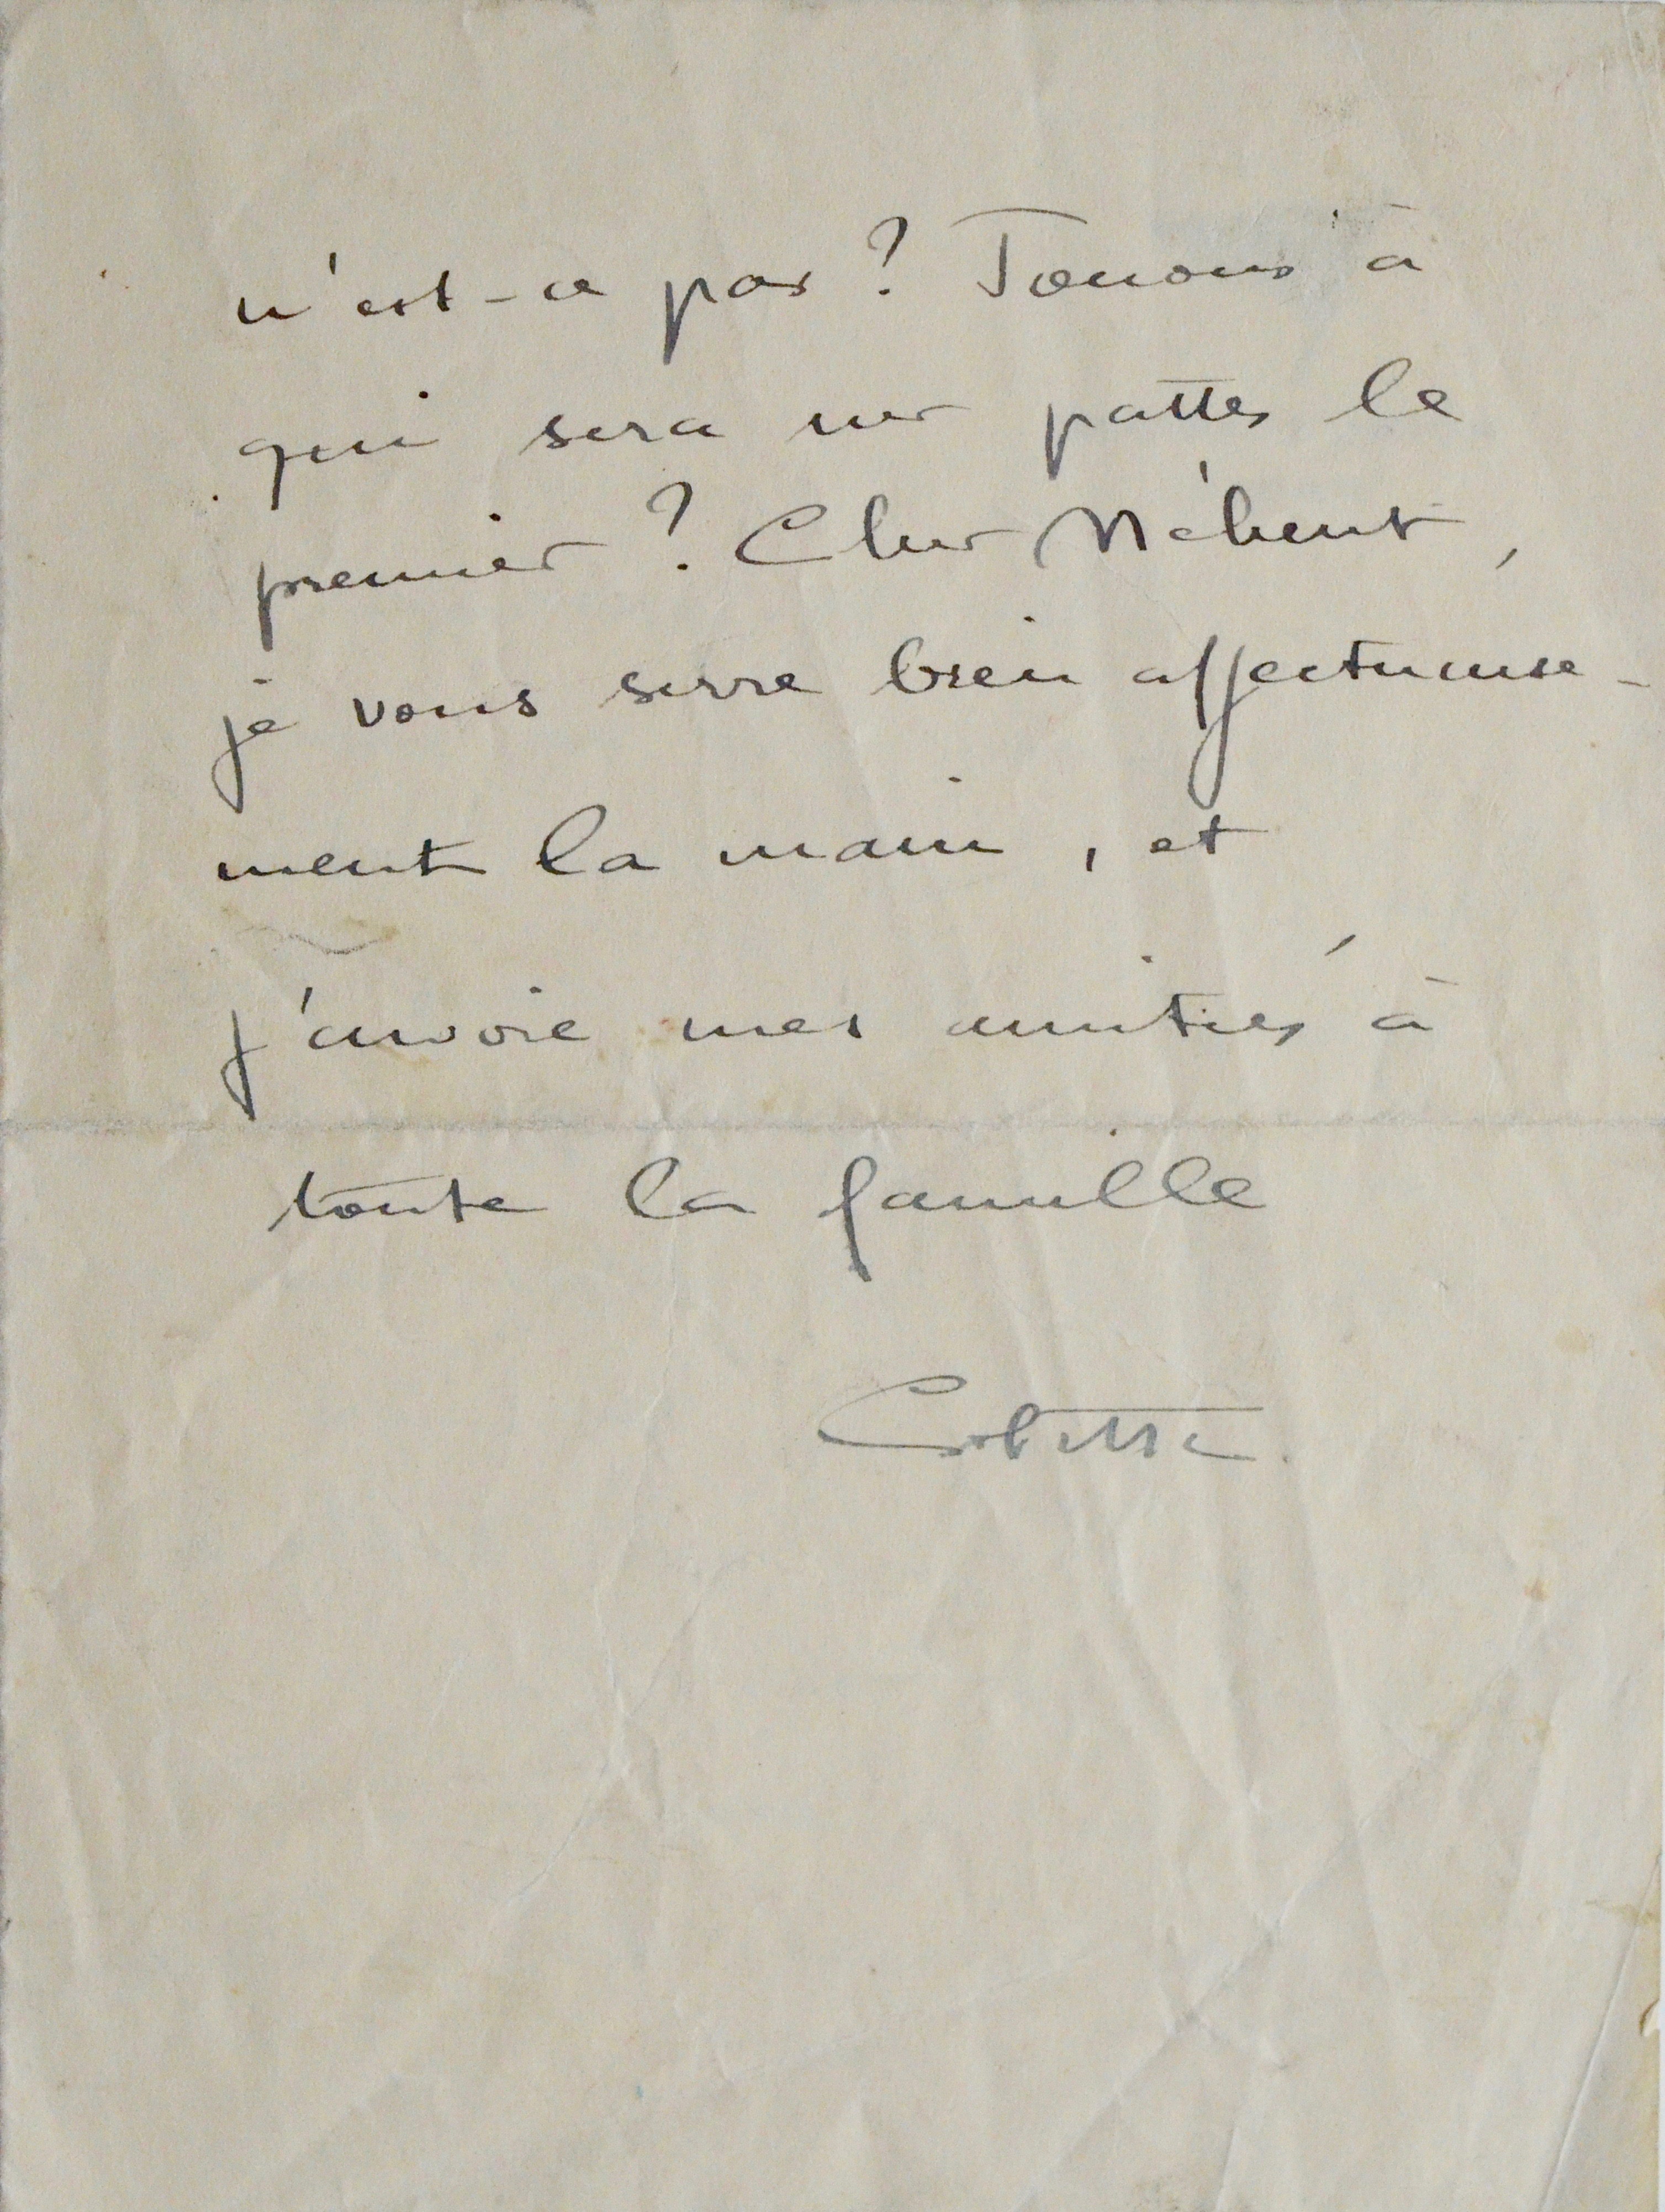 n'est-ce pas ? Jouons à
qui sera sur pattes le
premier ? Cher Méheut,
je vous serre bien affectueuse-
ment la main, et
j'envoie mes amitiés à
toute la famille
Colette